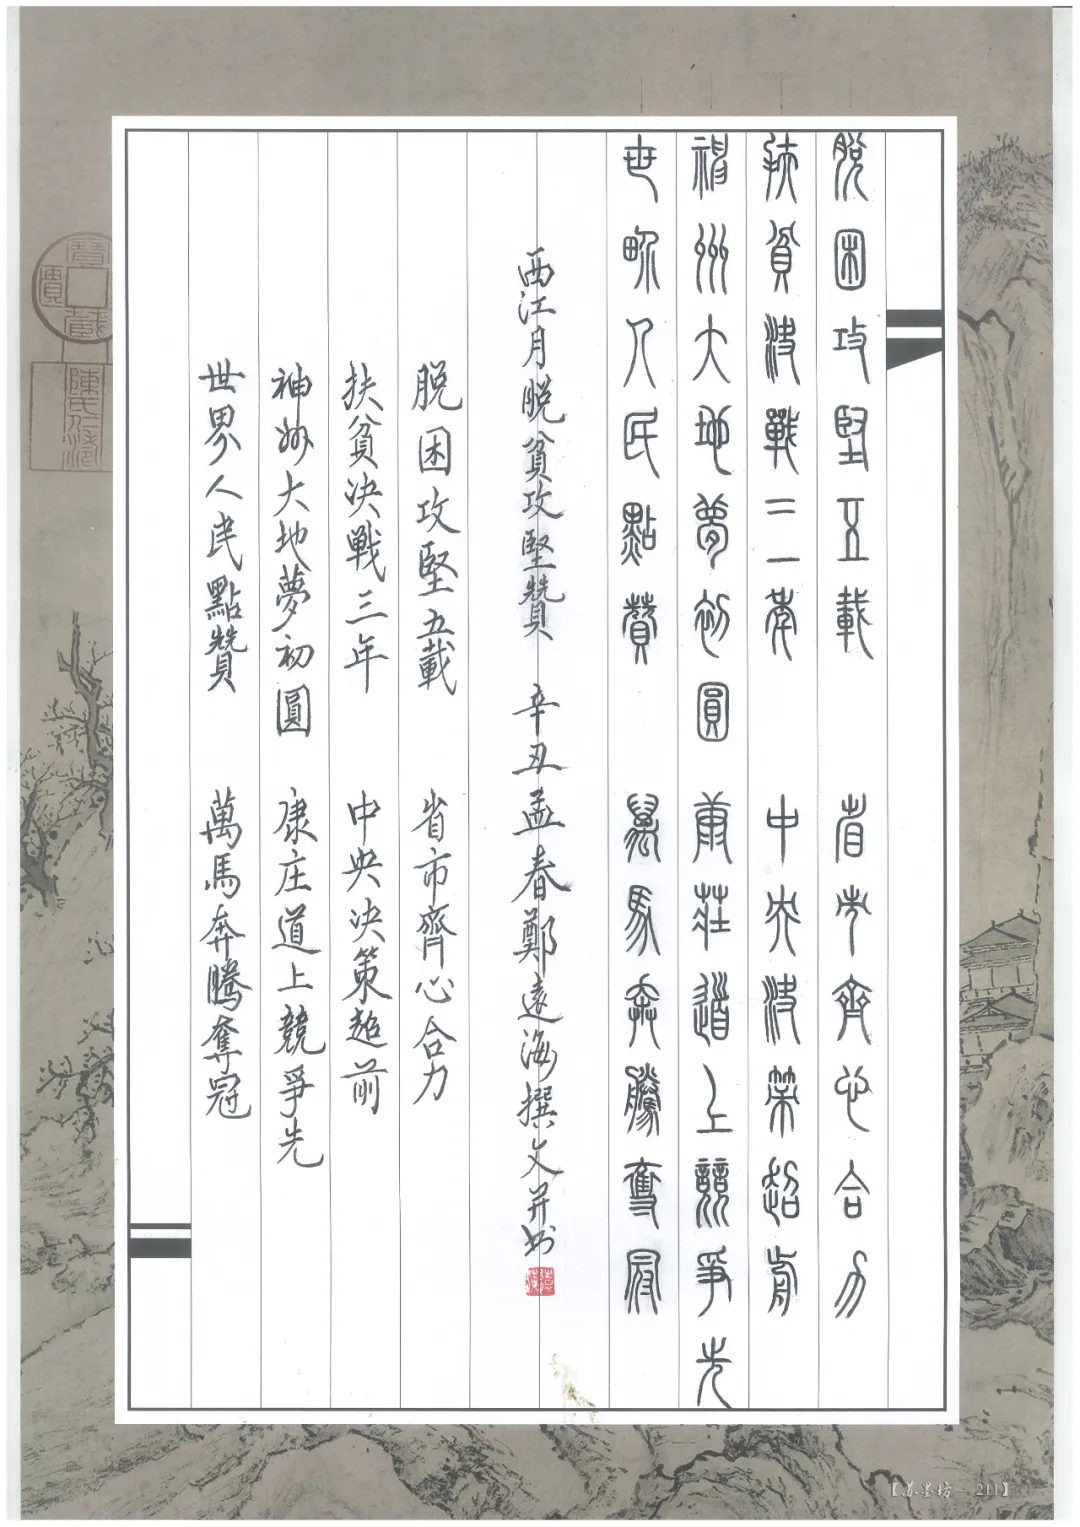 脫困攻堅五載 省市齊心合力
扶貧決戰三年 中央決策超前
神州大地夢初圓 康莊道上競爭先
世界人民點贊 萬馬奔騰奪冠
西江月脫貧攻堅贊 辛丑孟春鄭遠海撰文并書
脫困攻堅五載 省市齊心合力
扶貧決戰三年 中央決策超前
神州大地夢初圓 康庄道上競爭先
世界人民點贊 萬馬奔騰奪冠
【苏墨坊—211】